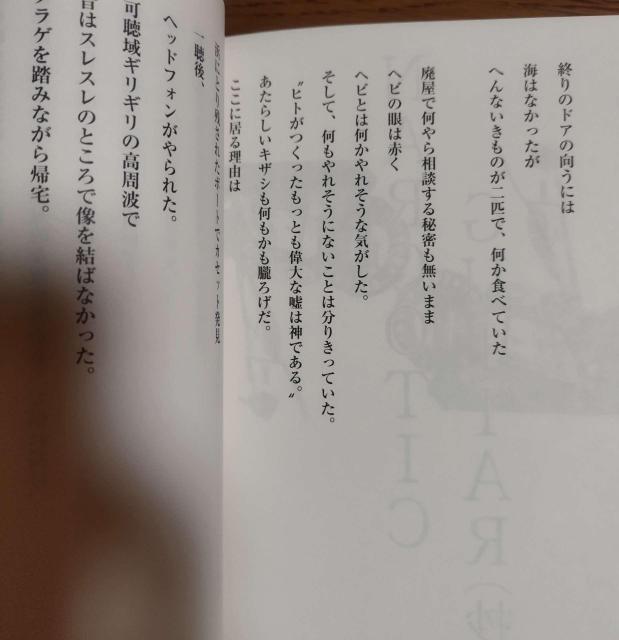 終りのドアの向うには
海はなかったが
へんないきものが二匹で、何か食べていた
廃屋で何やら相談する秘密も無いまま
ヘビの眼は赤く
ヘビとは何かやれそうな気がした。
そして、何もやれそうにないことは分りきっていた。
〝ヒトがつくったもっとも偉大な嘘は神である。〟
あたらしいキザシも何もかも朧ろげだ。
ここに居る理由は
一聴後、
ヘッドフォンがやられた。
可聴域ギリギリの高周波で
音はスレスレのところで像を結ばなかった。
クラゲを踏みながら帰宅。